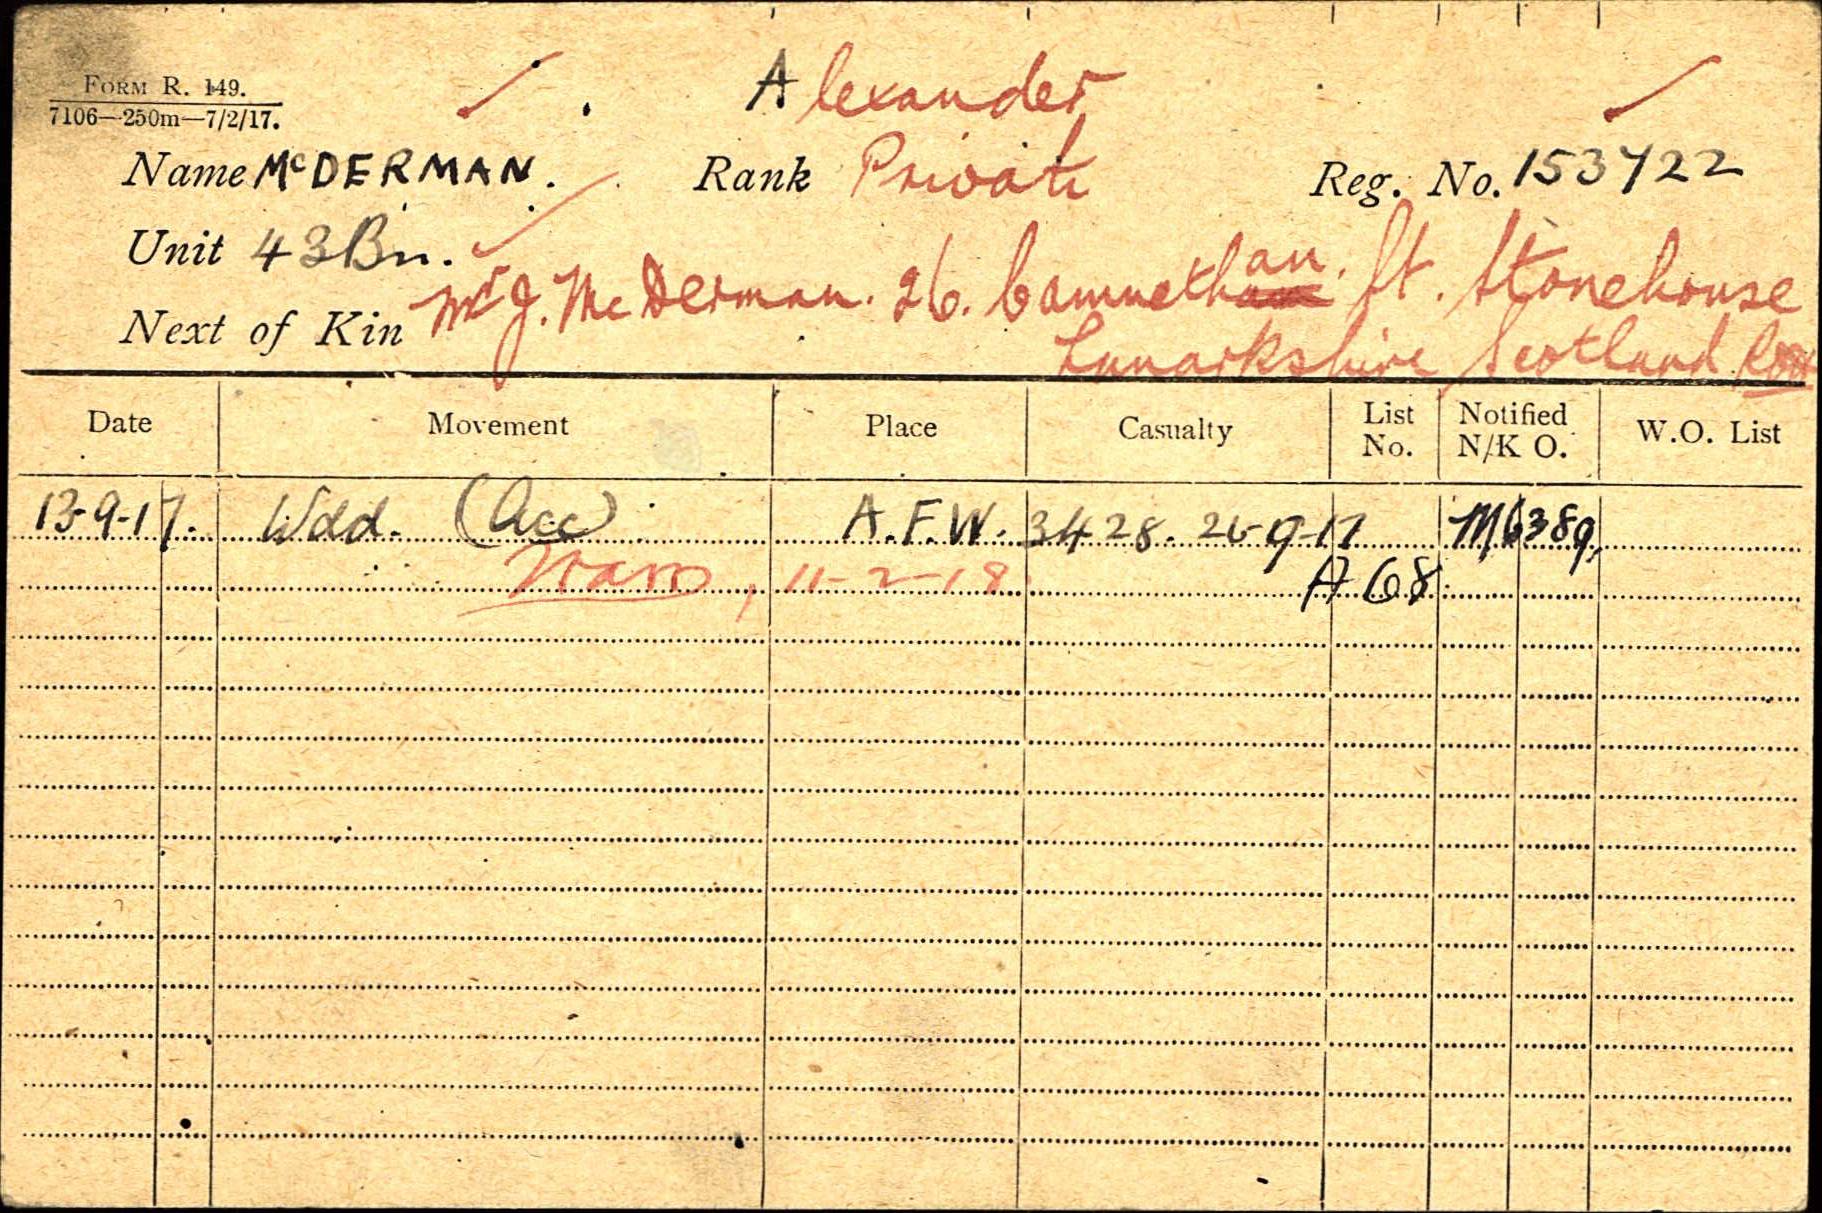 FORM R. 149.
7106—250m—7/2/17.
Alexander
Name McDERMAN. Rank Private Reg. No. 153722
Unit 43Bn.
Next of Kin Mr J. McDerman. 26. Camnethan. St. Stonehouse
Lanarkshire Scotland
Date Movement Place Casualty List No. Notified N/K O. W.O. List
13-9-17. Wdd. (Acc) A.F.W. 3428. 26-9-17 M6389,
11-2-18 A68